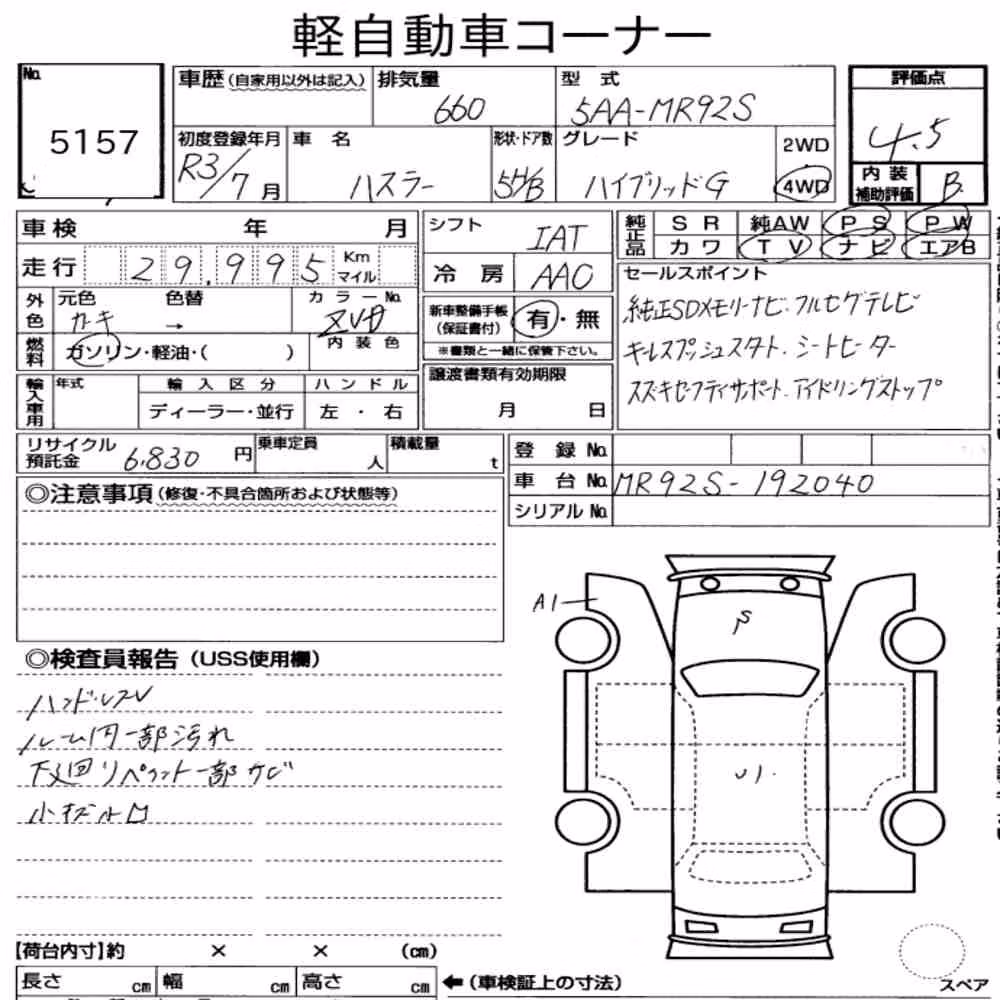 軽自動車コーナー
No.
5157
車歴(自家用以外は記入)
排気量
660
型 式
5AA-MR92S
評価点
4.5
初度登録年月
R3/7月
車 名
ハスラー
形状・ドア数
5H/B
グレード
ハイブリッドG
2WD
4WD
内 装
補助評価
B
車検 年 月
走行 29,995 Km
マイル
シフト
IAT
冷 房
AAC
純正品
S R 純AW P S P W
カワ T V ナビ エアB
外色
元色 色替
カーキ →
カラーNo.
ZVD
内 装 色
燃料
ガソリン・軽油・( )
新車整備手帳
(保証書付)
有・無
※書類と一緒に保管下さい。
セールスポイント
純正SDメモリーナビ.フルセグテレビ
キーレスプッシュスタート.シートヒーター
スズキセーフティサポート.アイドリングストップ
輸入車用
年式
輸 入 区 分
ディーラー・並行
ハ ン ド ル
左 ・ 右
譲渡書類有効期限
月 日
リサイクル
預託金 6,830 円
乗車定員
人
積載量
t
登 録 No.
車 台 No. MR92S-192040
シリアル No.
◎注意事項(修復・不具合箇所および状態等)
◎検査員報告(USS使用欄)
ルーム内一部汚れ
下廻リペイント一部サビ
小キズ凹
A1
U1.
【荷台内寸】約 × × (cm)
長さ cm 幅 cm 高さ cm
←(車検証上の寸法)
スペア